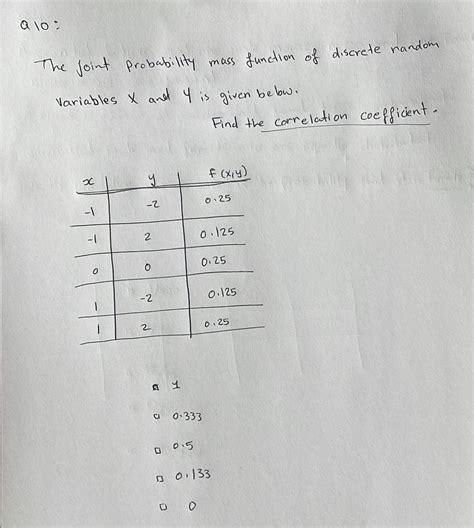 Q10:
The joint probability mass function of discrete random
variables X and Y is given below.
Find the correlation coefficient.
x y f(x,y)
-1 -2 0.25
-1 2 0.125
0 0 0.25
1 -2 0.125
1 2 0.25
1
0.333
0.5
0.133
0